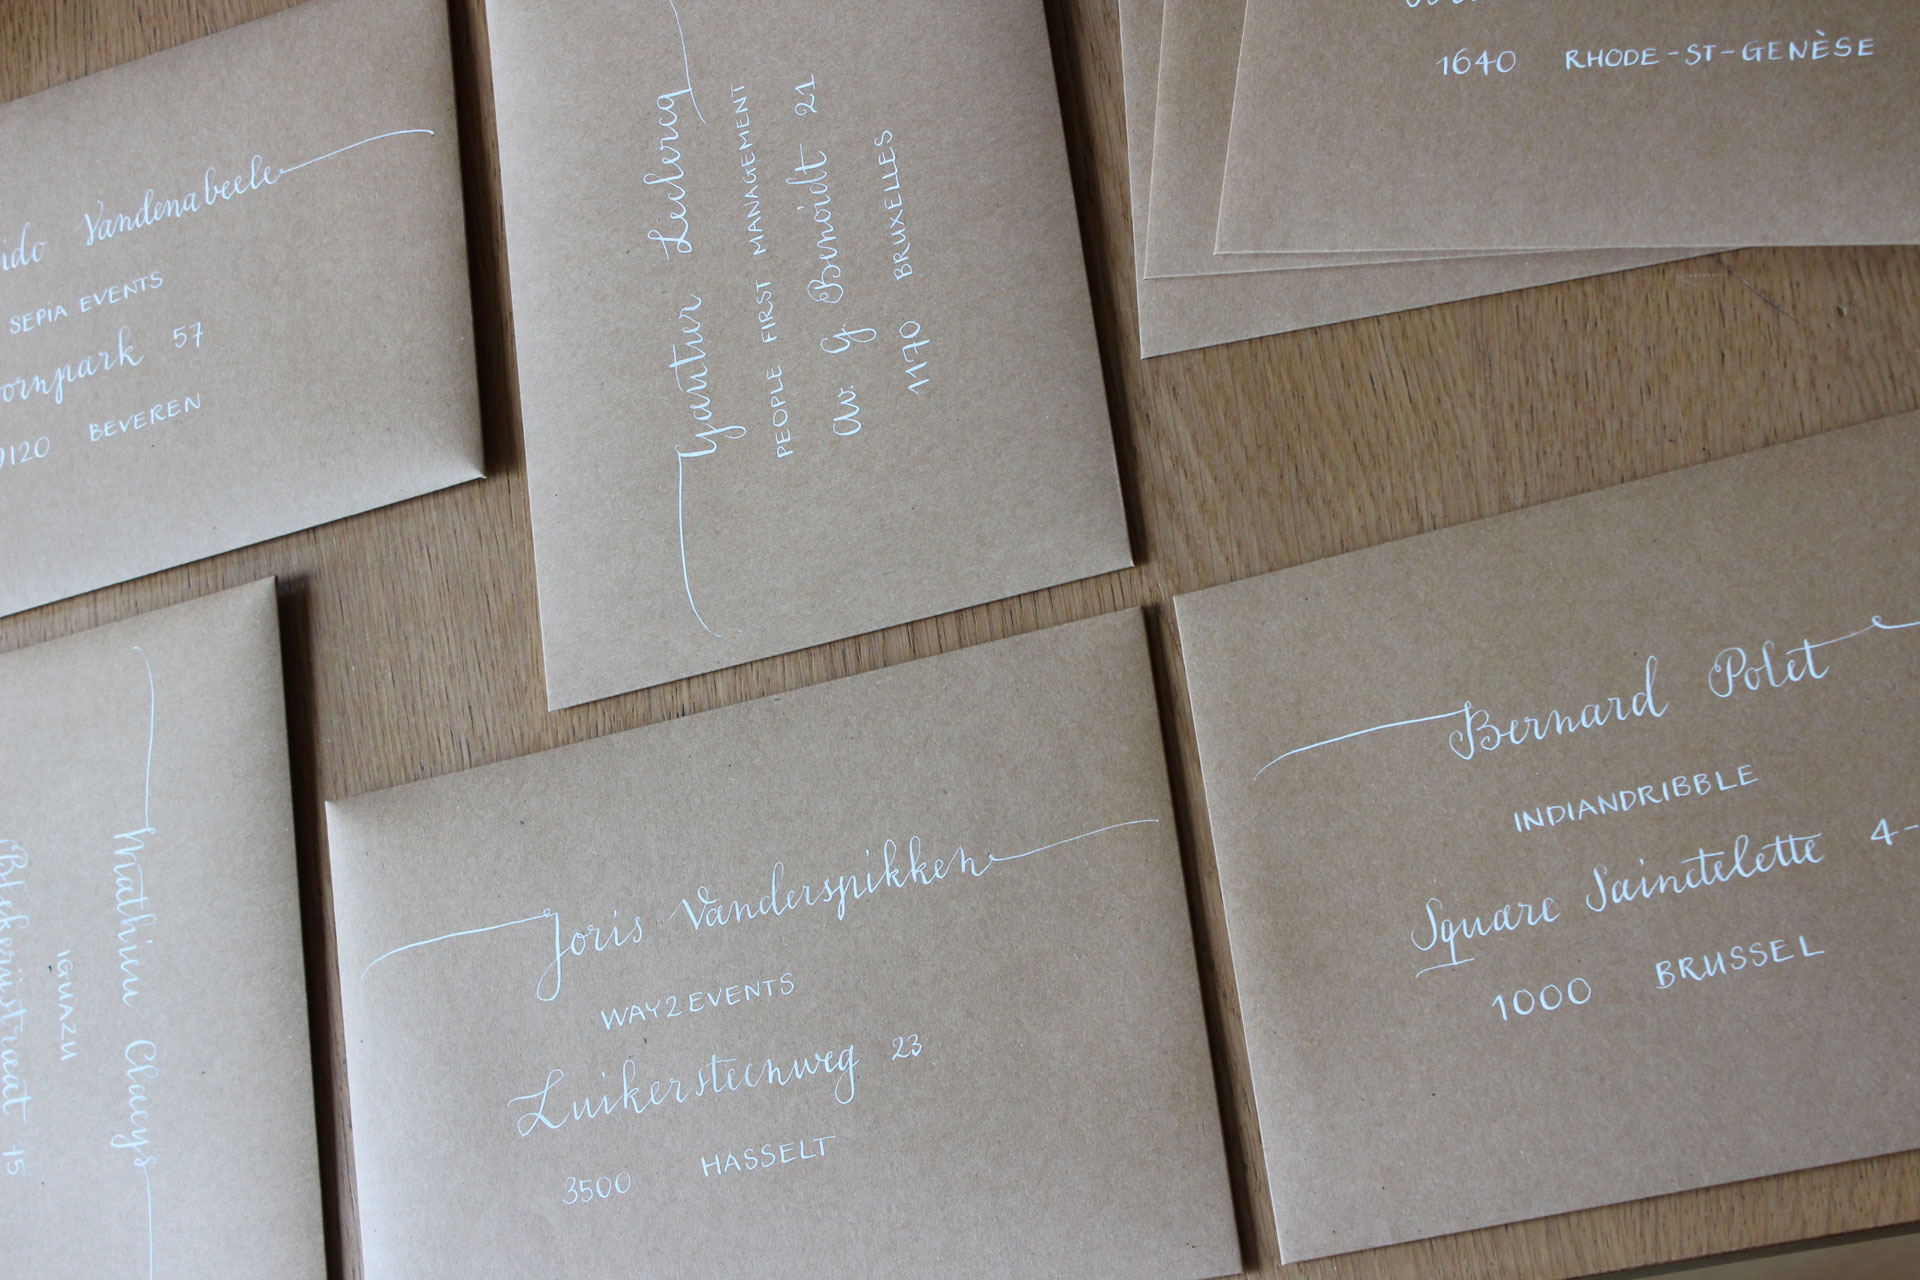 Vandenabeele
SEPIA EVENTS
57
9120 BEVEREN
Gautier Leclercq
PEOPLE FIRST MANAGEMENT
Av. G Benoidt 21
1170 BRUXELLES
1640 RHODE-ST-GENÈSE
Mathieu Claeys
IGUAZU
15
Joris Vanderspikken
WAY2EVENTS
Luikersteenweg 23
3500 HASSELT
Bernard Polet
INDIANDRIBBLE
Square Sainctelette 4-
1000 BRUSSEL